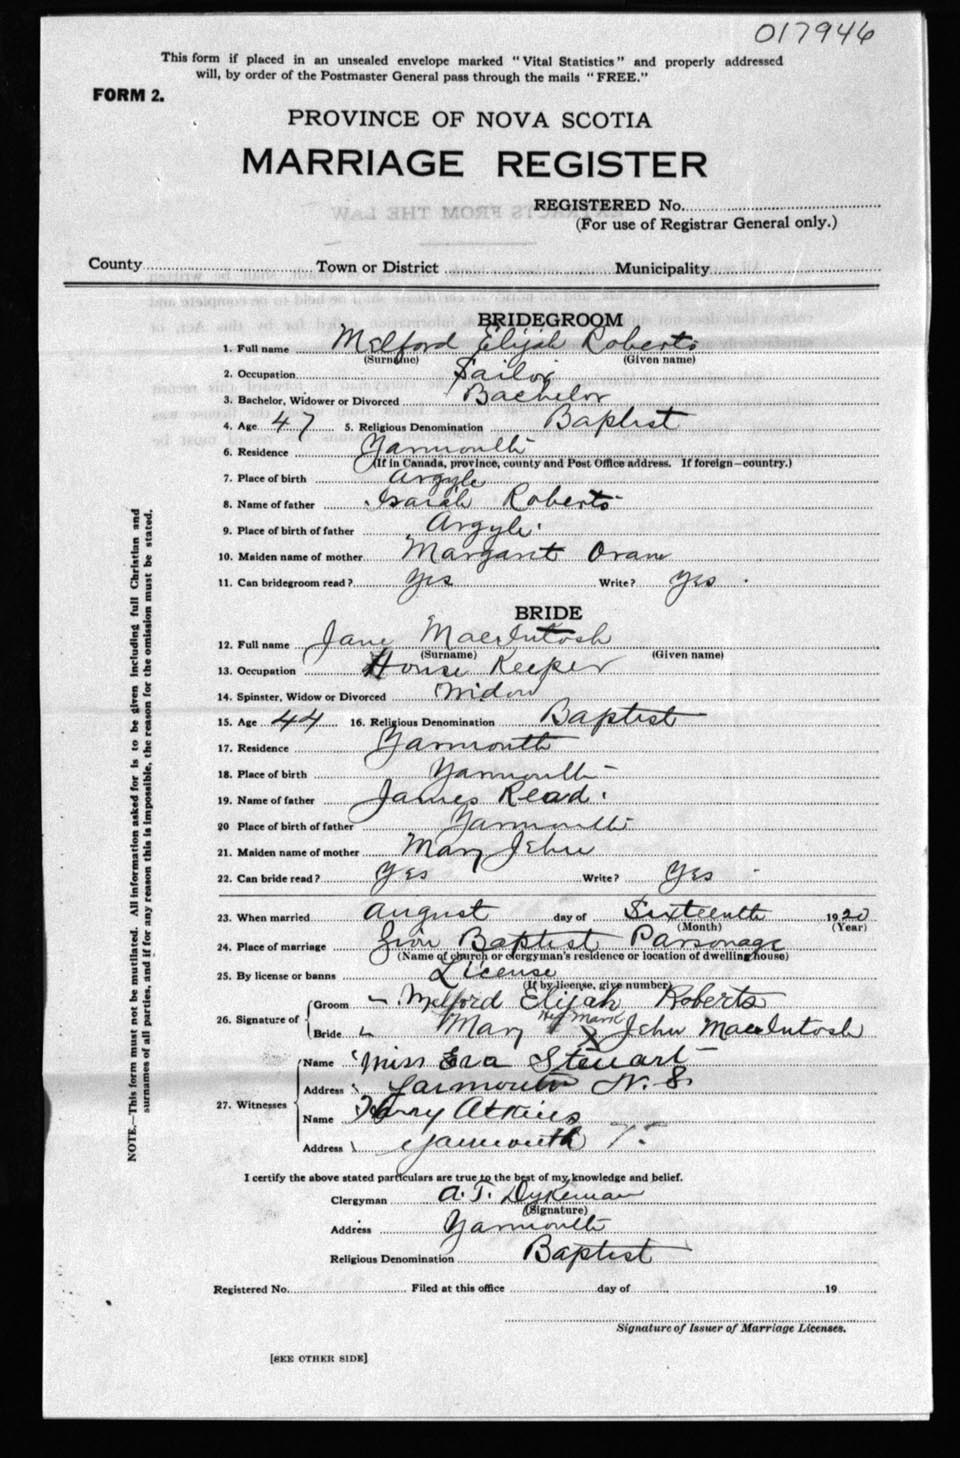 017946
This form if placed in an unsealed envelope marked "Vital Statistics" and properly addressed
will, by order of the Postmaster General pass through the mails "FREE."
FORM 2.
PROVINCE OF NOVA SCOTIA
MARRIAGE REGISTER
REGISTERED No.
(For use of Registrar General only.)
County Town or District Municipality
BRIDEGROOM
1. Full name Melford Elijah Roberts
(Surname) (Given name)
2. Occupation Sailor
3. Bachelor, Widower or Divorced Bachelor
4. Age 47 5. Religious Denomination Baptist
6. Residence Yarmouth
(If in Canada, province, county and Post Office address. If foreign—country.)
7. Place of birth Argyle
8. Name of father Isaiah Roberts
9. Place of birth of father Argyle
10. Maiden name of mother Margaret
11. Can bridegroom read? Yes Write? Yes
BRIDE
12. Full name Jane MacIntosh
(Surname) (Given name)
13. Occupation House Keeper
14. Spinster, Widow or Divorced Widow
15. Age 44 16. Religious Denomination Baptist
17. Residence Yarmouth
18. Place of birth Yarmouth
19. Name of father James Read
20 Place of birth of father Yarmouth
21. Maiden name of mother Mary Jehu
22. Can bride read? Yes Write? Yes
23. When married August day of Sixteenth 1920
(Month) (Year)
24. Place of marriage Zion Baptist Parsonage
(Name of church or clergyman's residence or location of dwelling house)
25. By license or banns License
(If by license, give number)
26. Signature of Groom Melford Elijah Roberts
Her Mark
Bride Mary X Jehu MacIntosh
27. Witnesses Name Miss Eva Steuart
Address Yarmouth N. S.
Name Harry Atkins
Address Yarmouth
I certify the above stated particulars are true to the best of my knowledge and belief.
Clergyman A. T. Dykeman
(Signature)
Address Yarmouth
Religious Denomination Baptist
Registered No. Filed at this office day of 19
Signature of Issuer of Marriage Licenses.
[SEE OTHER SIDE]
NOTE.—This form must not be mutilated. All information asked for is to be given including full Christian and
surnames of all parties, and if for any reason this is impossible, the reason for the omission must be stated.